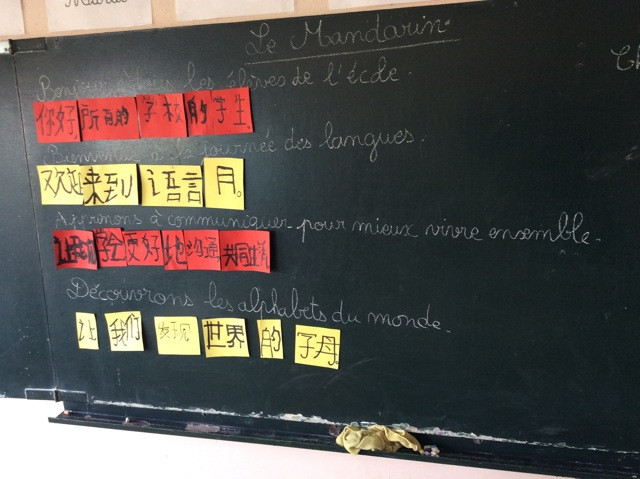 Le Mandarin.
Bonjour à tous les élèves de l'école.
你好所有的学校的学生。
Bienvenue à la journée des langues.
欢迎来到U语言月。
Apprenons à communiquer pour mieux vivre ensemble.
让我们学会更好地沟通共同生活
Découvrons les alphabets du monde.
让我们发现世界的字母。